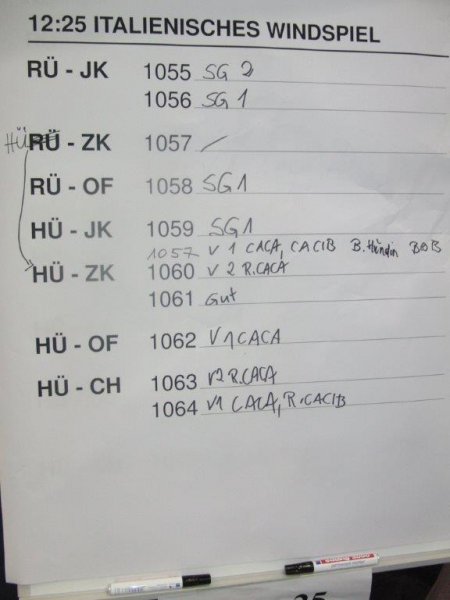 12:25 ITALIENISCHES WINDSPIEL
RÜ - JK 1055 SG 2
1056 SG 1
HÜ RÜ - ZK 1057 /
RÜ - OF 1058 SG1
HÜ - JK 1059 SG1
1057 V 1 CACA, CACIB B.Hündin BOB
HÜ - ZK 1060 V 2 R.CACA
1061 Gut
HÜ - OF 1062 V1 CACA
HÜ - CH 1063 V2 R.CACA
1064 V1 CACA, R.CACIB